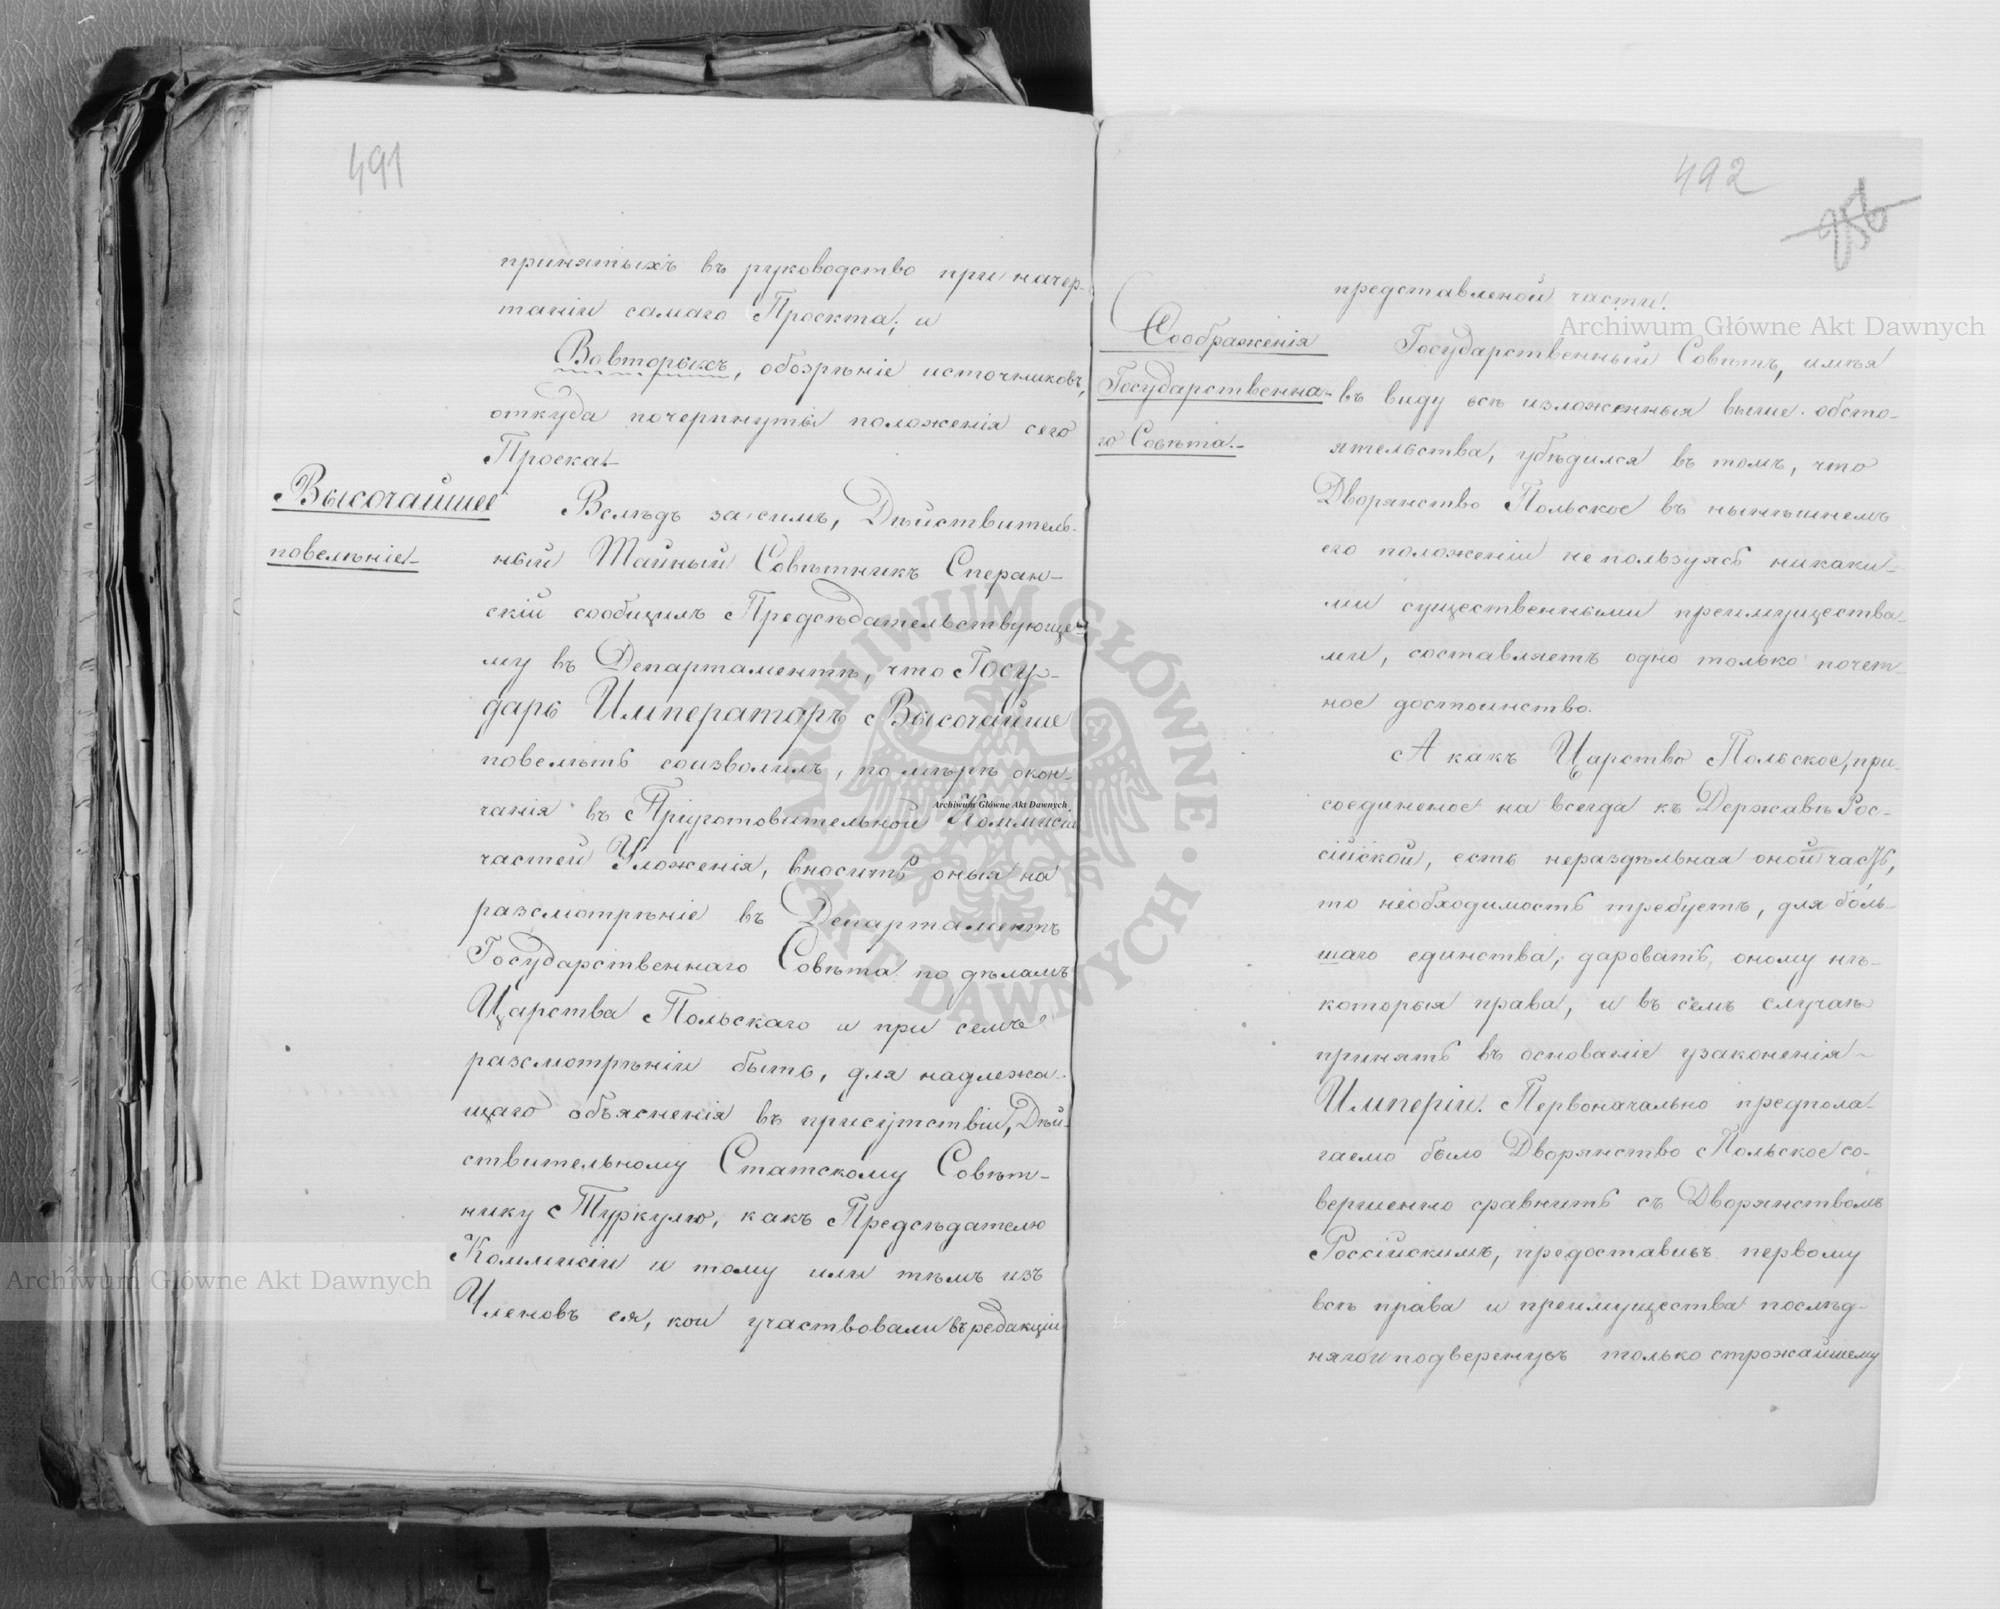 491
принятыхъ въ руководство при начер-
таніи самаго Проекта; и
Вовторыхъ, обозрѣніе источниковъ,
откуда почерпнуты положенія сего
Проека.
Высочайшее
повелѣніе.
Вслѣдъ засимъ, Дѣйствитель-
ный Тайный Совѣтникъ Сперан-
скій сообщилъ Предсѣдательствующе-
му въ Департаментѣ, что Госу-
дарь Императоръ Высочайше
повелѣть соизволилъ, по мѣрѣ окон-
чанія въ Пріуготовительной Коммисіи
частей Уложенія, вносить оныя на
разсмотрѣніе въ Департаментъ
Государственнаго Совѣта по дѣламъ
Царства Польскаго и при семъ
разсмотрѣніи быть, для надлежа-
щаго объясненія въ присутствіи, Дѣй-
ствительному Статскому Совѣт-
нику Туркулю, какъ Предсѣдателю
Коммисіи и тому или тѣмъ изъ
Членовъ ея, кои участвовали въ редакціи
492
представленой части.
Соображенія
Государственна-
го Совѣта.
Государственный Совѣтъ, имѣя
въ виду всѣ изложенныя выше обсто-
ятельства, убѣдился въ томъ, что
Дворянство Польское въ нынѣшнемъ
его положеніи не пользуясь никаки-
ми существенными преимущества-
ми, составляетъ одно только почет-
ное достоинство.
А какъ Царство Польское, при-
соединеное на всегда къ Державѣ Рос-
сійской, есть нераздѣльная оной часть,
то необходимость требуетъ, для боль-
шаго единства, даровать оному нѣ-
которыя права, и въ семъ случаѣ
принять въ основаніе узаконенія
Имперіи. Первоначально предпола-
гаемо было Дворянство Польское со-
вершенно сравнить съ Дворянствомъ
Россійскимъ, предоставивъ первому
всѣ права и преимущества послѣд-
няго и подвергнувъ только строжайшему
Archiwum Główne Akt Dawnych
Archiwum Główne Akt Dawnych
Archiwum Główne Akt Dawnych
ARCHIWUM GŁÓWNE · AKT DAWNYCH ·